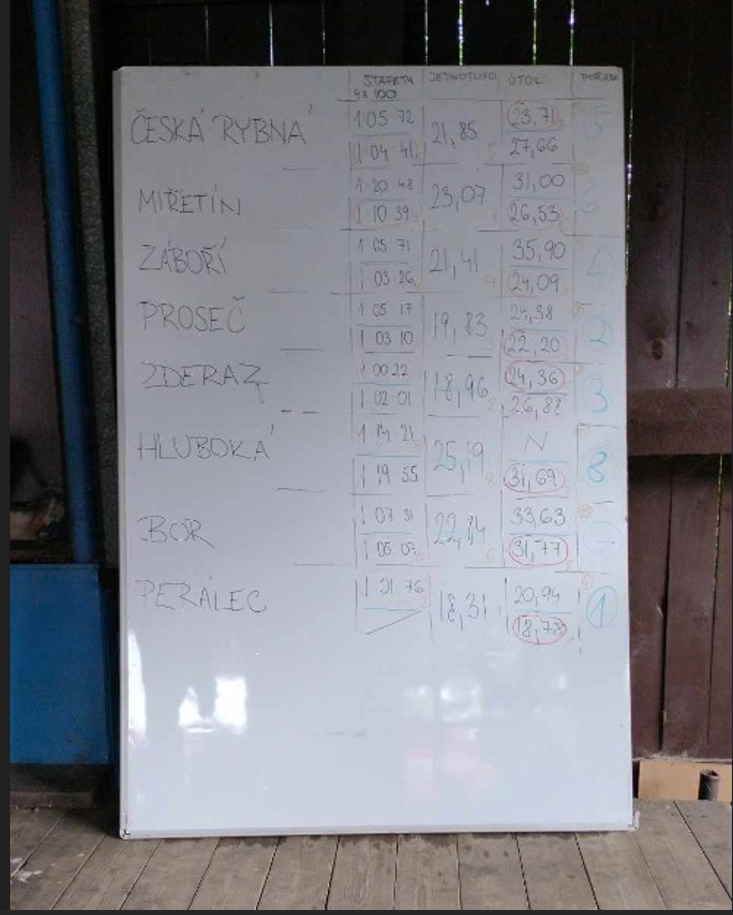 ŠTAFETY JEDNOTLIVCI ÚTOK POŘADÍ
4x100
ČESKÁ RYBNÁ 1 05 72 21,85 23,71 5
1 04 41 27,66
MIŘETÍN 1 20 48 23,07 31,00 6
1 10 39 26,53
ZÁBOŘÍ 1 05 71 21,41 35,90 4
1 03 26 24,09
PROSEČ 1 05 17 19,83 24,38 2
1 03 10 22,20
ZDERAZ 1 00 22 18,96 24,36 3
1 02 01 26,88
HLUBOKÁ 1 14 21 25,19 N 8
1 19 55 31,69
BOR 1 07 31 22,84 33,63
31,77
PERÁLEC 1 21 76 18,31 20,94 1
18,78